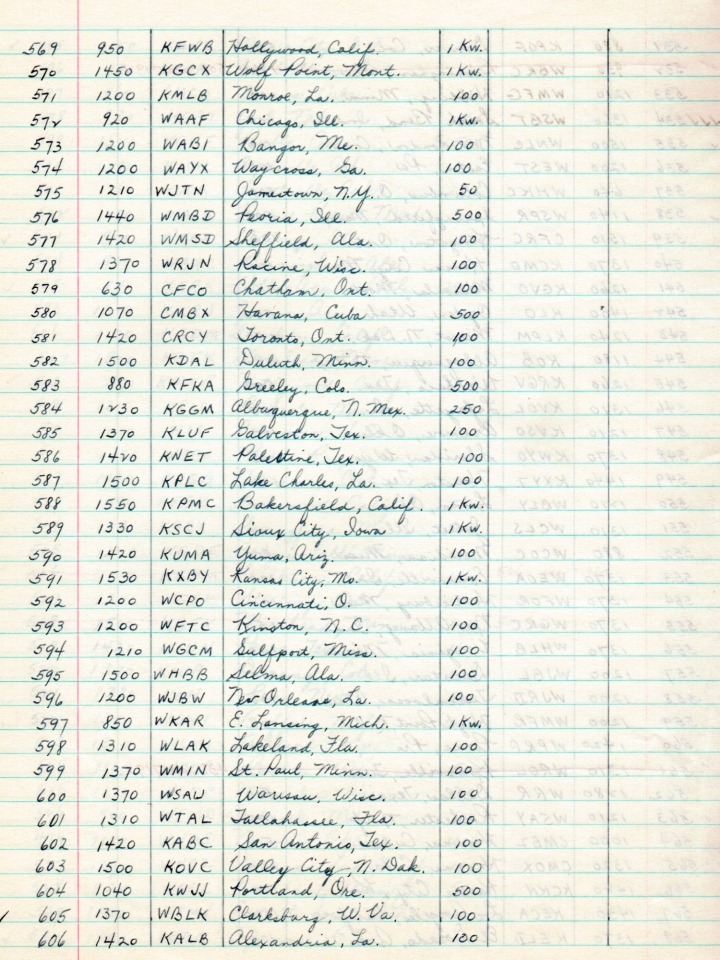 569 950 KFWB Hollywood, Calif. 1 Kw.
570 1450 KGCX Wolf Point, Mont. 1 Kw.
571 1200 KMLB Monroe, La. 100
572 920 WAAF Chicago, Ill. 1 Kw.
573 1200 WABI Bangor, Me. 100
574 1200 WAYX Waycross, Ga. 100
575 1210 WJTN Jamestown, N.Y. 50
576 1440 WMBD Peoria, Ill. 500
577 1420 WMSD Sheffield, Ala. 100
578 1370 WRJN Racine, Wisc. 100
579 630 CFCO Chatham, Ont. 100
580 1070 CMBX Havana, Cuba 500
581 1420 CRCY Toronto, Ont. 100
582 1500 KDAL Duluth, Minn. 100
583 880 KFKA Greeley, Colo. 500
584 1230 KGGM Albuquerque, N. Mex. 250
585 1370 KLUF Galveston, Tex. 100
586 1420 KNET Palestine, Tex. 100
587 1500 KPLC Lake Charles, La. 100
588 1550 KPMC Bakersfield, Calif. 1 Kw.
589 1330 KSCJ Sioux City, Iowa 1 Kw.
590 1420 KUMA Yuma, Ariz. 100
591 1530 KXBY Kansas City, Mo. 1 Kw.
592 1200 WCPO Cincinnati, O. 100
593 1200 WFTC Kinston, N.C. 100
594 1210 WGCM Gulfport, Miss. 100
595 1500 WHBB Selma, Ala. 100
596 1200 WJBW New Orleans, La. 100
597 850 WKAR E. Lansing, Mich. 1 Kw.
598 1310 WLAK Lakeland, Fla. 100
599 1370 WMIN St. Paul, Minn. 100
600 1370 WSAU Wausau, Wisc. 100
601 1310 WTAL Tallahassee, Fla. 100
602 1420 KABC San Antonio, Tex. 100
603 1500 KOVC Valley City, N. Dak. 100
604 1040 KWJJ Portland, Ore. 500
605 1370 WBLK Clarksburg, W. Va. 100
606 1420 KALB Alexandria, La. 100